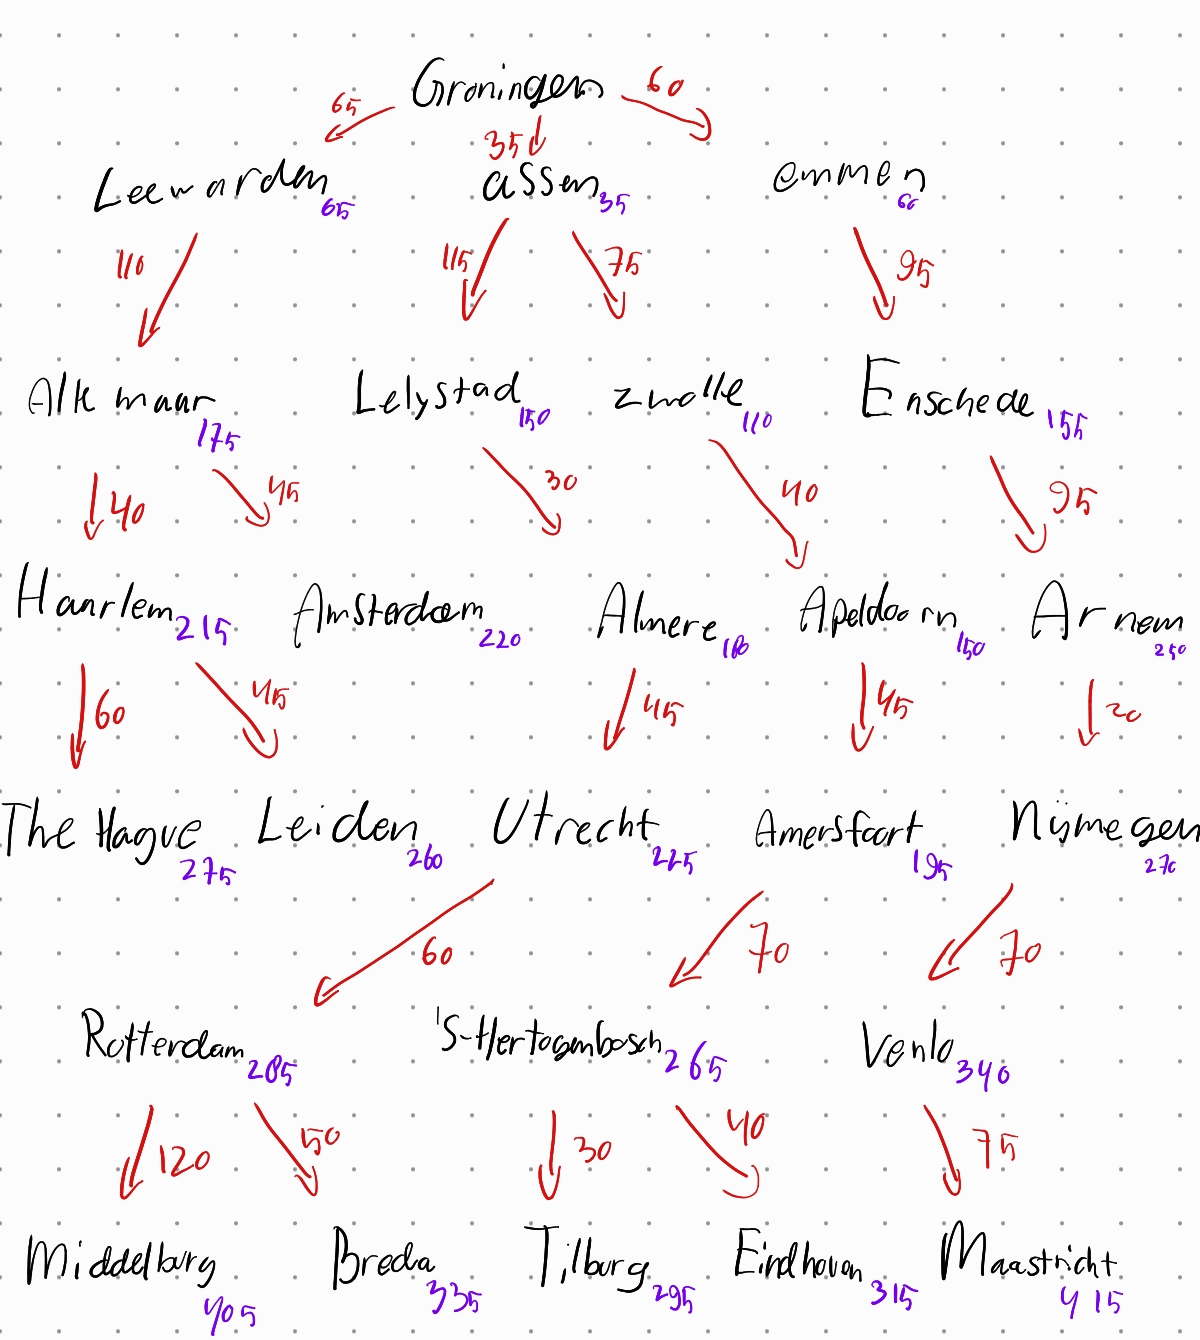 Groningen
65 35 60
Leewarden 65 assen 35 emmen 60
110 115 75 95
Alkmaar 175 Lelystad 150 zwolle 110 Enschede 155
40 45 30 40 95
Haarlem 215 Amsterdam 220 Almere 180 Apeldoorn 150 Arnem 250
60 45 45 45 20
The Hague 275 Leiden 260 Utrecht 225 Amersfoort 195 Nijmegen 270
60 70 70
Rotterdam 285 'S-Hertogenbosch 265 Venlo 340
120 50 30 40 75
Middelburg 405 Breda 335 Tilburg 295 Eindhoven 315 Maastricht 415